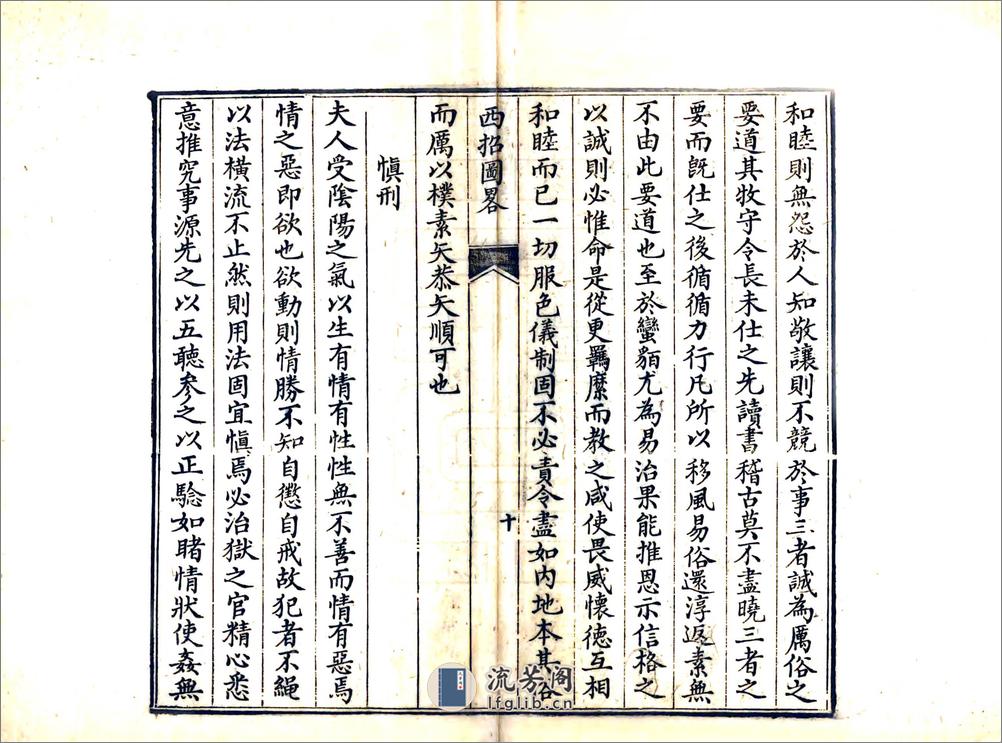 和睦則無怨於人知敬讓則不競於事三者誠為厲俗之
要道其牧守令長未仕之先讀書稽古莫不盡曉三者之
要而旣仕之後循循力行凡所以移風易俗還淳返素無
不由此要道也至於蠻貊尤為易治果能推恩示信格之
以誠則必惟命是從更羈縻而教之咸使畏威懷徳互相
和睦而已一切服色儀制固不必責令盡如内地本其俗
西招圖畧
十
而厲以樸素矢恭矢順可也
慎刑
夫人受陰陽之氣以生有情有性性無不善而情有惡焉
情之惡即欲也欲動則情勝不知自懲自戒故犯者不繩
以法橫流不止然則用法固宜慎焉必治獄之官精心悉
意推究事源先之以五聽參之以正驗如睹情狀使姦無
流芳阁
lfglib.cn